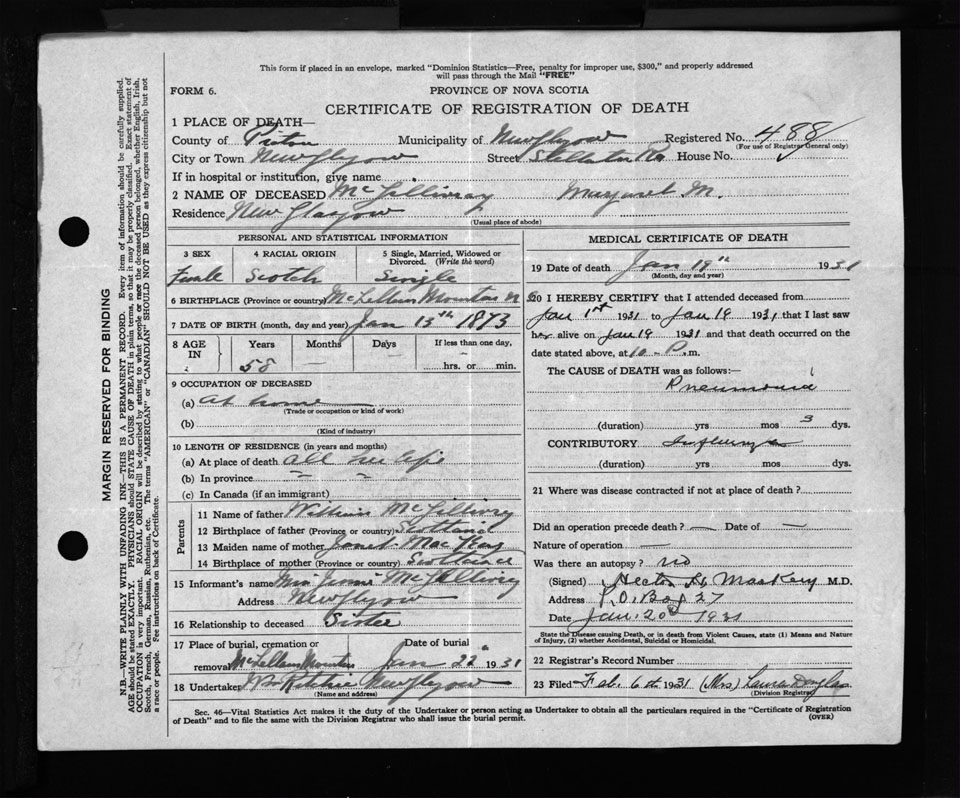 This form if placed in an envelope, marked "Dominion Statistics—Free, penalty for improper use, $300," and properly addressed
will pass through the Mail "FREE"
FORM 6.
PROVINCE OF NOVA SCOTIA
CERTIFICATE OF REGISTRATION OF DEATH
1 PLACE OF DEATH—
County of Pictou Municipality of New Glasgow Registered No. 488
(For use of Registrar General only)
City or Town New Glasgow Street Stellarton Rd House No.
If in hospital or institution, give name
2 NAME OF DECEASED McGillivray Margaret M.
Residence New Glasgow
(Usual place of abode)
PERSONAL AND STATISTICAL INFORMATION
3 SEX 4 RACIAL ORIGIN 5 Single, Married, Widowed or Divorced. (Write the word)
Female Scotch Single
6 BIRTHPLACE (Province or country) McLellans Mountain
7 DATE OF BIRTH (month, day and year) Jan 13th 1873
8 AGE IN Years Months Days If less than one day,
58 — — hrs. or min.
9 OCCUPATION OF DECEASED
(a) At home
(Trade or occupation or kind of work)
(b)
(Kind of industry)
10 LENGTH OF RESIDENCE (in years and months)
(a) At place of death all her life
(b) In province
(c) In Canada (if an immigrant)
Parents
11 Name of father William McGillivry
12 Birthplace of father (Province or country) Scotland
13 Maiden name of mother Janet MacKay
14 Birthplace of mother (Province or country) Scotland
15 Informant's name Miss Jennie McGillivry
Address New Glasgow
16 Relationship to deceased Sister
17 Place of burial, cremation or Date of burial
removal McLellans Mountain Jan 22 1931
18 Undertaker Ritchie New Glasgow
(Name and address)
MEDICAL CERTIFICATE OF DEATH
19 Date of death Jan 19th 1931
(Month, day and year)
20 I HEREBY CERTIFY that I attended deceased from
Jan 1st 1931 to Jan 19 1931 that I last saw
her alive on Jan 19 1931 and that death occurred on
date stated above, at 10 P. m.
The CAUSE of DEATH was as follows:—
Pneumonia
(duration) yrs mos 3 dys.
CONTRIBUTORY Influenza
(duration) yrs mos dys.
21 Where was disease contracted if not at place of death?
Did an operation precede death? — Date of —
Nature of operation —
Was there an autopsy? no
(Signed) Hector H. MacKay M.D.
Address P.O. Box 27
Date Jan. 20 1931
State the Disease causing Death, or in death from Violent Causes, state (1) Means and Nature
of Injury, (2) whether Accidental, Suicidal or Homicidal.
22 Registrar's Record Number
23 Filed Feb. 6th 1931 (Mrs) Laura Douglas
(Division Registrar)
Sec. 46—Vital Statistics Act makes it the duty of the Undertaker or person acting as Undertaker to obtain all the particulars required in the "Certificate of Registration
of Death" and to file the same with the Division Registrar who shall issue the burial permit.
(OVER)
MARGIN RESERVED FOR BINDING
N.B.—WRITE PLAINLY WITH UNFADING INK—THIS IS A PERMANENT RECORD. Every item of information should be carefully supplied.
AGE should be stated EXACTLY. PHYSICIANS should STATE CAUSE OF DEATH in plain terms, so that it may be properly classified. Exact statement of
OCCUPATION is very important. RACIAL ORIGIN will be described by stating to what people or race the deceased person belonged, whether English, Irish,
Scotch, French, German, Russian, Ruthenian, etc. The terms "AMERICAN" or "CANADIAN" SHOULD NOT BE USED as they express citizenship but not
a race or people. See instructions on back of Certificate.